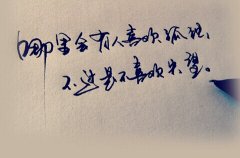 哪里会有人喜欢孤独,
不过是不喜欢失望。